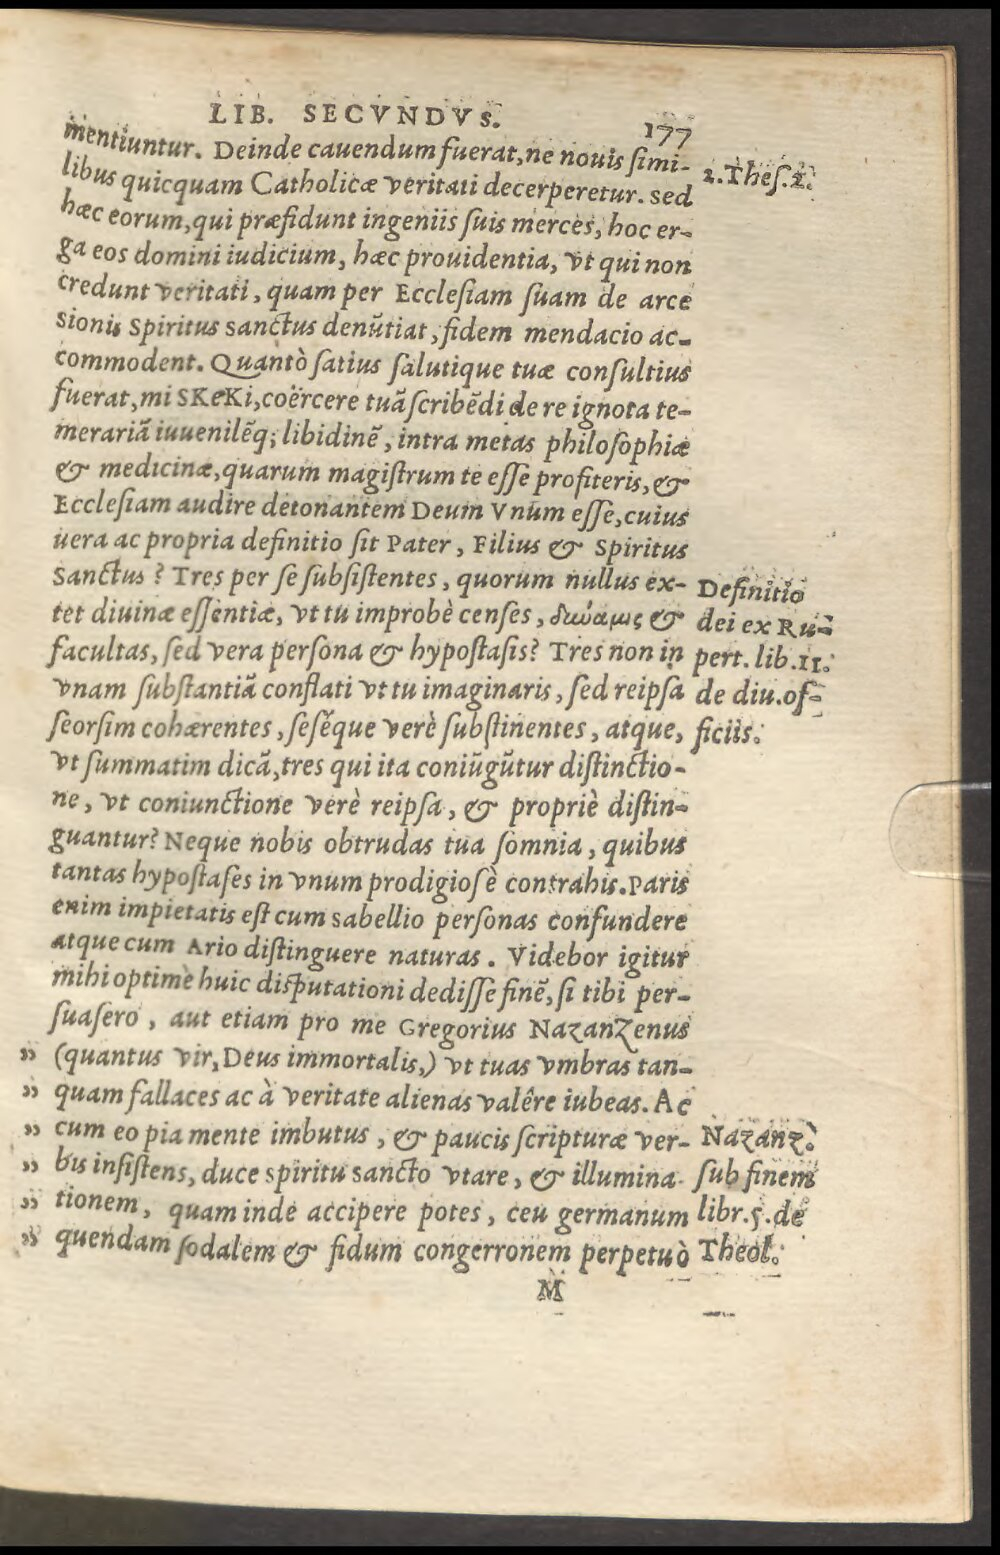 LIB. SECVNDVS.
177
mentiuntur. Deinde cauendum fuerat, ne nouis simi-
libus quicquam Catholicæ veritati decerperetur. sed
hæc eorum, qui præfidunt ingeniis suis merces, hoc er-
ga eos domini iudicium, hæc prouidentia, vt qui non
credunt veritati, quam per Ecclesiam suam de arce
Sionis Spiritus Sanctus denũtiat, fidem mendacio ac-
commodent. Quantò satius salutique tuæ consultius
fuerat, mi SKeKi, coërcere tuã scribẽdi de re ignota te-
merariã iuuenilẽq; libidinẽ, intra metas philosophiæ
& medicinæ, quarum magistrum te esse profiteris, &
Ecclesiam audire detonantem Deum Vnum esse, cuius
uera ac propria definitio sit Pater, Filius & Spiritus
Sanctus? Tres per se subsistentes, quorum nullus ex-
tet diuinæ essentiæ, vt tu improbè censes, δυνάμις &
facultas, sed vera persona & hypostasis? Tres non in
vnam substantiã conflati vt tu imaginaris, sed reipsa
seorsim cohærentes, sesẽque verè substinentes, atque,
vt summatim dicã, tres qui ita coniũgũtur distinctio-
ne, vt coniunctione verè reipsa, & propriè distin-
guantur? Neque nobis obtrudas tua somnia, quibus
tantas hypostases in vnum prodigiosè contrahis. Paris
enim impietatis est cum Sabellio personas confundere
atque cum Ario distinguere naturas. Videbor igitur
mihi optimè huic disputationi dedisse finẽ, si tibi per-
suasero, aut etiam pro me Gregorius Nazanzenus
” (quantus vir, Deus immortalis,) vt tuas vmbras tan-
” quam fallaces ac à veritate alienas valêre iubeas. Ac
” cum eo pia mente imbutus, & paucis scripturæ ver-
” bis insistens, duce spiritu sancto vtare, & illumina-
” tionem, quam inde accipere potes, ceu germanum
” quendam sodalem & fidum congerronem perpetuò
M
2. Thes. 2.
Definitio
dei ex Ru-
pert. lib. 11.
de diu. of-
ficiis.
Nazanz.
sub finem
libr. 5. de
Theol.